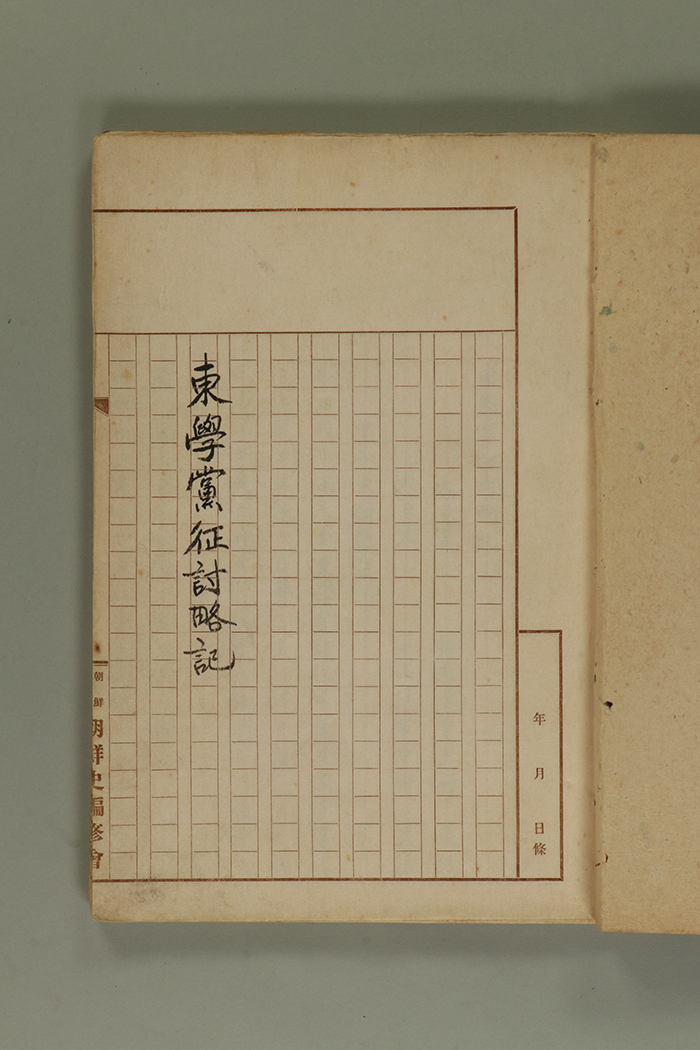 年月日條
東學黨征討略記
朝鮮
朝鮮史編修會